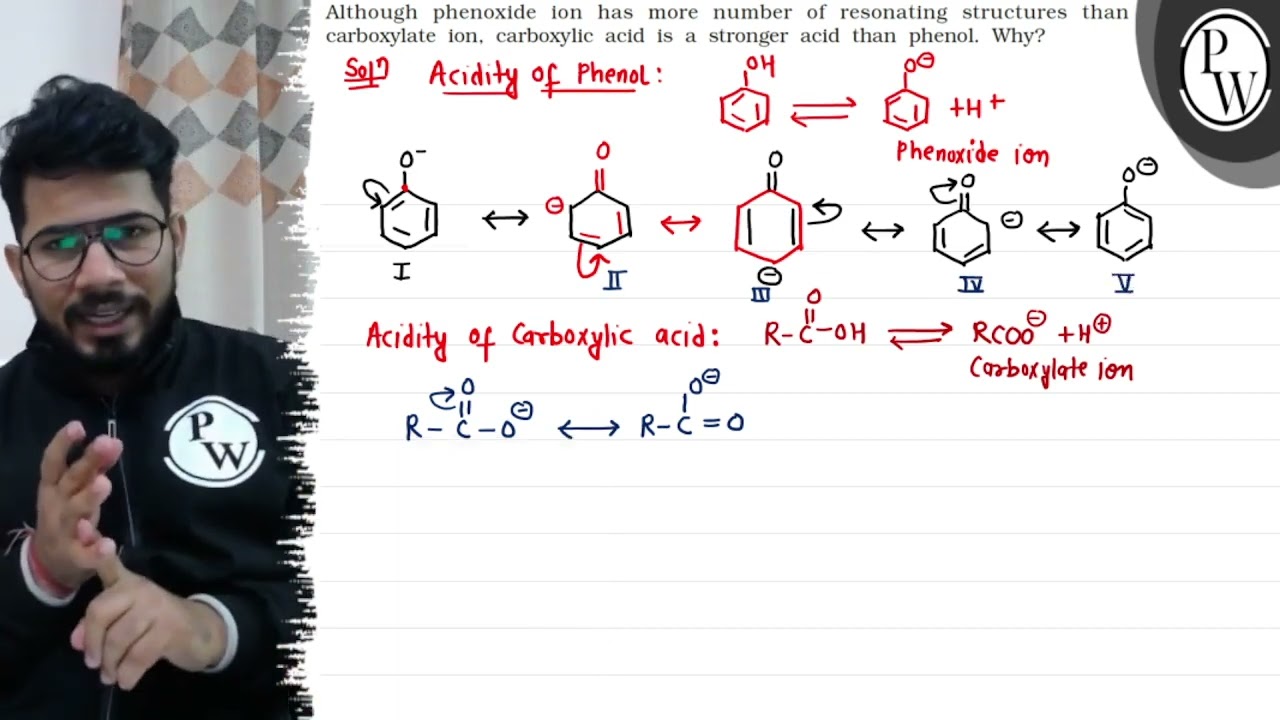 Although phenoxide ion has more number of resonating structures than
carboxylate ion, carboxylic acid is a stronger acid than phenol. Why?
Solⁿ Acidity of Phenol:
OH ⇌ O⊖ +H+
Phenoxide ion
O⁻ ↔ ⊖ O ↔ O ⊖ ↔ O ⊖ ↔ O⊖
I II III IV V
Acidity of Carboxylic acid: R-C(=O)-OH ⇌ RCOO⊖ +H⊕
Carboxylate ion
R-C(=O)-O⊖ ↔ R-C(-O⊖)=O
PW
PW